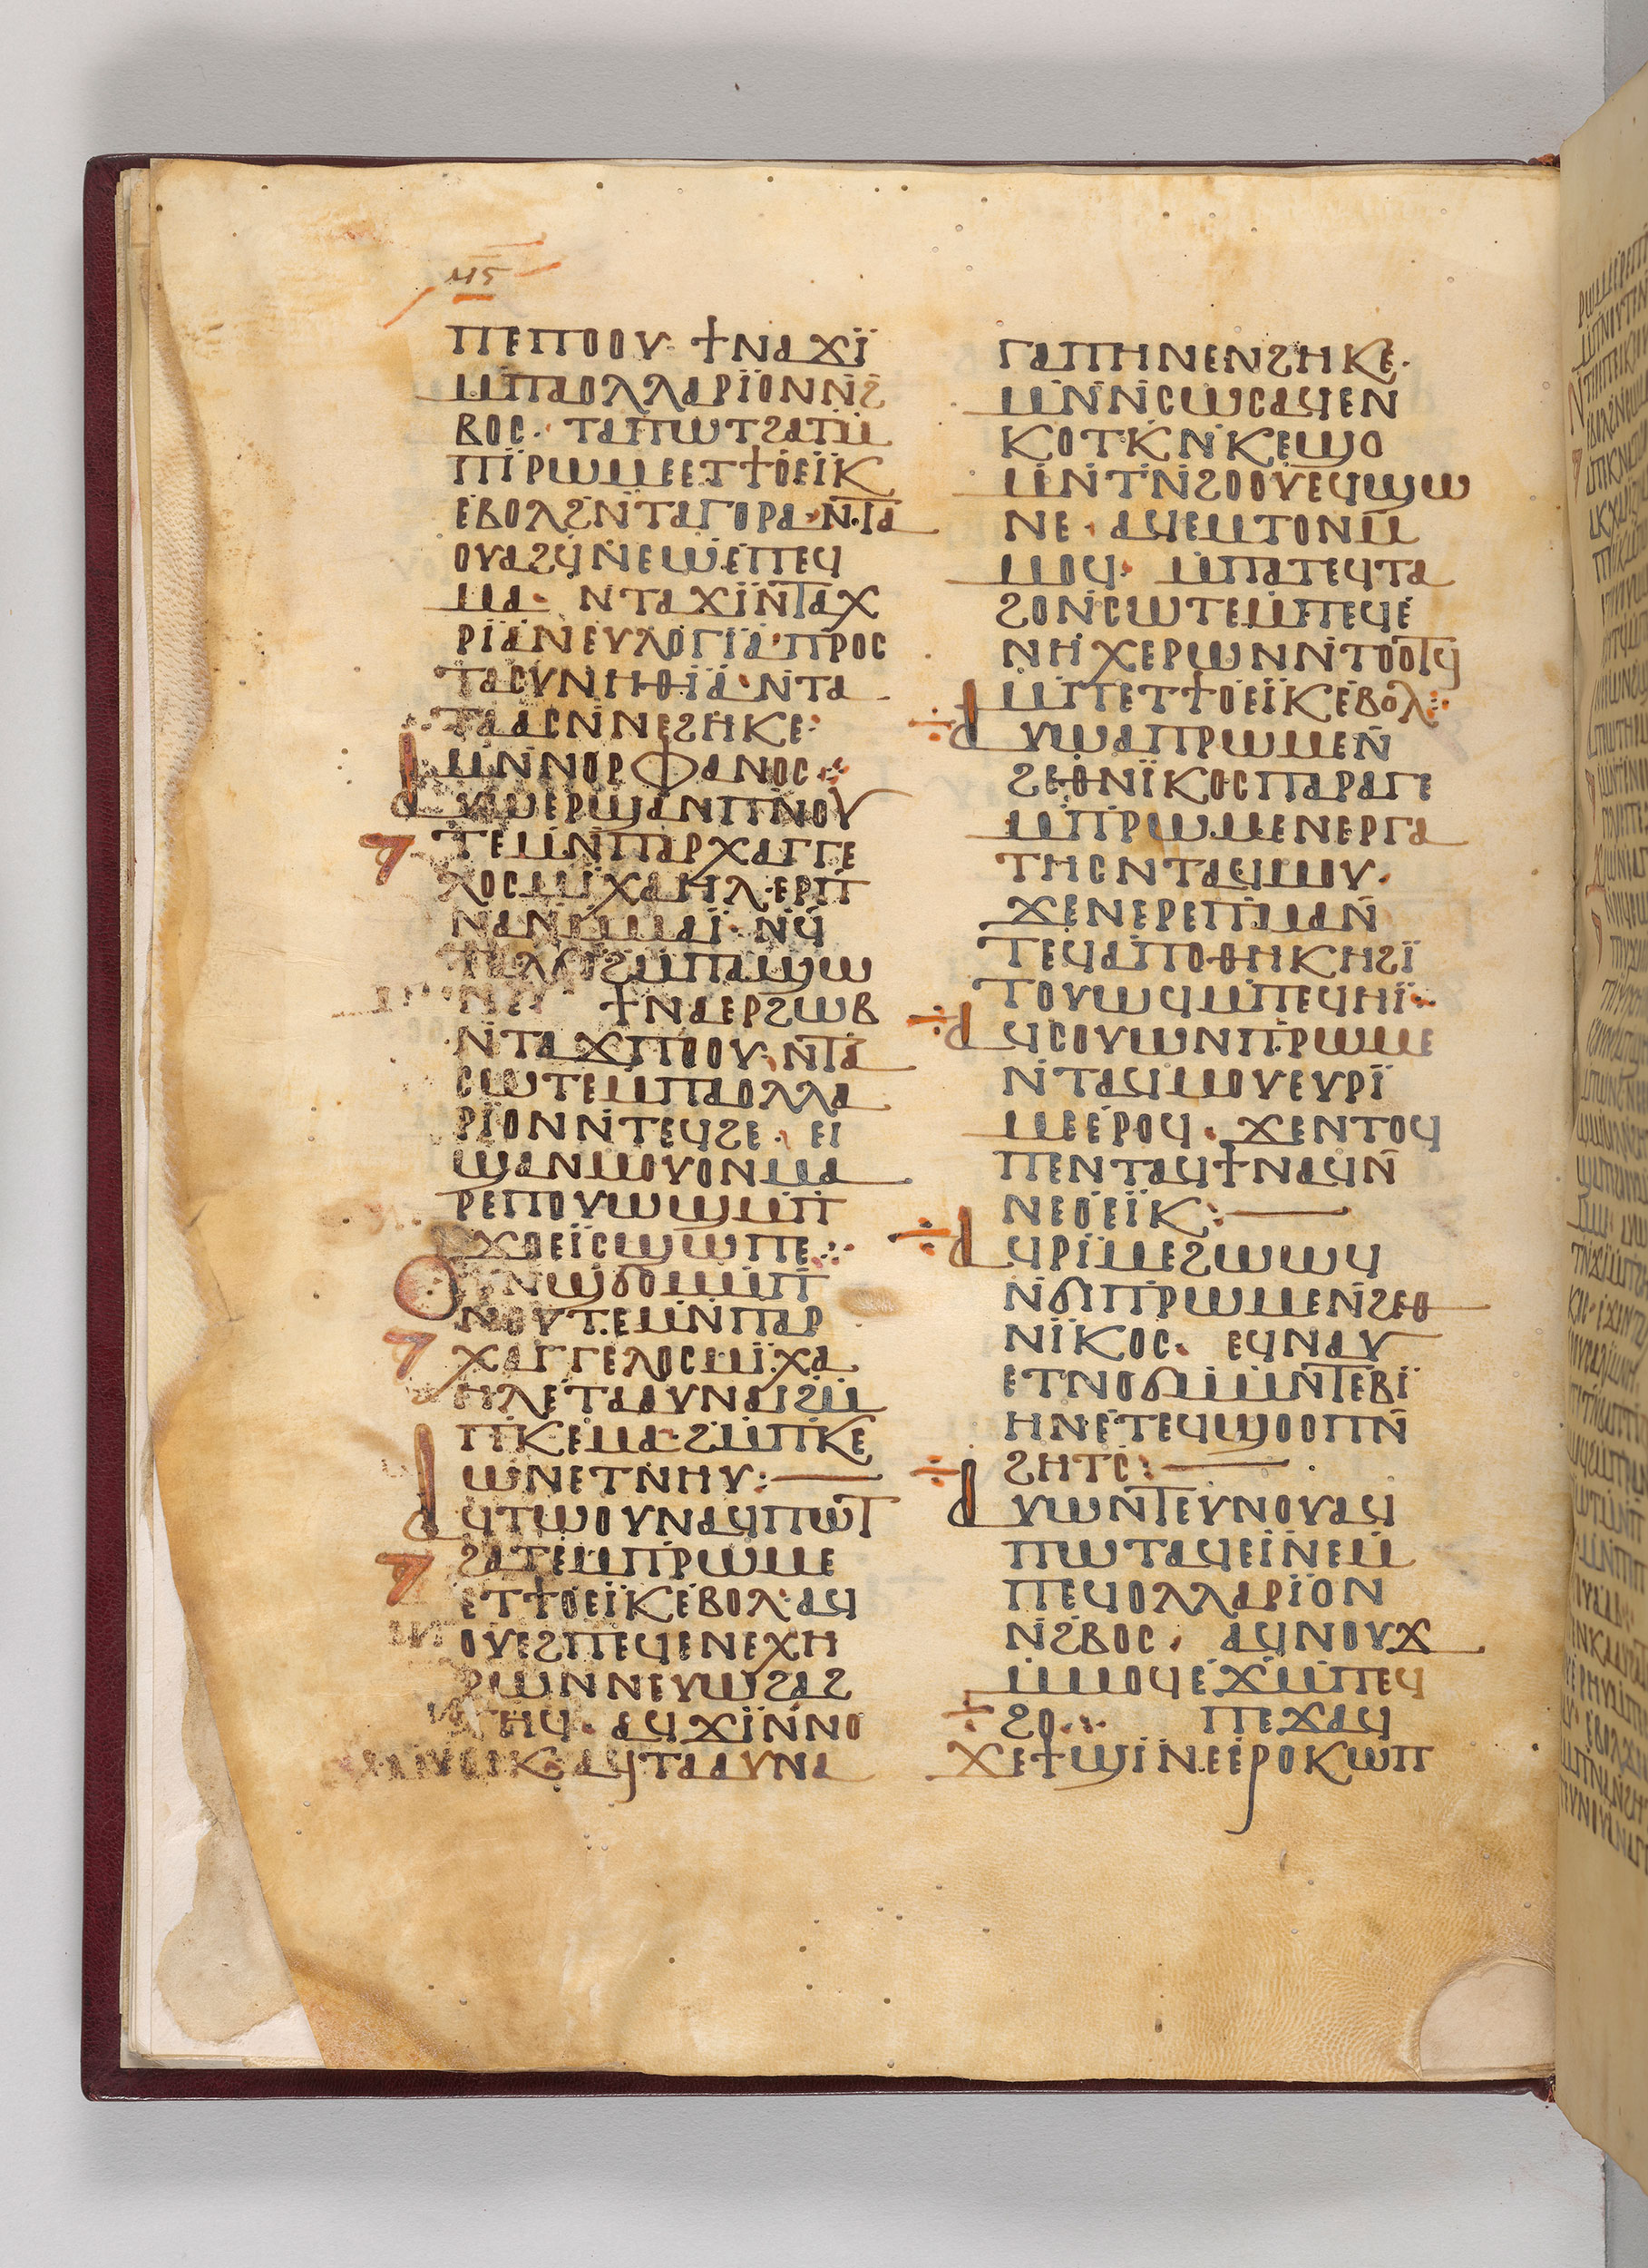 ⲙⲋ
ⲡⲉⲡⲟⲟⲩ ϯⲛⲁϫⲓ̈
ⲙ̅ⲡⲁⲟⲗⲗⲁⲣⲓ̈ⲟⲛⲛ̅ϩ
ⲃⲟⲥ· ⲧⲁⲡⲱⲧϩⲁⲧⲙ̅
ⲡⲓ̈ⲣⲱⲙⲉⲉⲧϯⲟⲉⲓ̈ⲕ
ⲉⲃⲟⲗϩⲛ̅ⲧⲁⲅⲟⲣⲁ·ⲛ̅ⲧⲁ
ⲟⲩⲁϩϥ̅ⲛⲉϣⲉⲡⲉϥ
ⲙⲁ· ⲛⲧⲁϫⲓ̈ⲛ̅ⲧⲁⲭ
ⲣⲓ̈ⲁⲛⲉⲩⲗⲟⲅⲓ̈ⲁ·ⲡⲣⲟⲥ
ⲧⲁⲥⲩⲛⲏⲑⲓ̈ⲁ·ⲛⲧⲁ
ⲧⲁⲁⲥⲛ̅ⲛⲉϩⲏⲕⲉ:
ⲙⲛ̅ⲛⲟⲣⲫⲁⲛⲟⲥ⁘
ⲁⲩⲱⲉⲣϣⲁⲛⲡⲛⲟⲩ
ⲧⲉⲙⲛ̅ⲡⲁⲣⲭⲁⲅⲅⲉ
ⲗⲟⲥⲙⲓ̈ⲭⲁⲏⲗ·ⲉⲣⲡ
ⲛⲁⲛⲙ̅ⲙⲁⲓ̈·ⲛϥ̅
ϩⲙ̅ⲡⲁϣⲱ
ϯⲛⲁⲉⲣϩⲱⲃ
ⲛ̅ⲧⲁϫⲡⲟⲟⲩ·ⲛ̅ⲧⲁ
ⲥⲱⲧⲉⲙⲡⲁⲟⲗⲗⲁ
ⲣⲓ̈ⲟⲛⲛ̅ⲧⲉϥϩⲉ· ⲉⲓ
ϣⲁⲛⲙⲟⲩⲟⲛⲙⲁ
ⲣⲉⲡⲟⲩⲱϣⲙ̅ⲡ
ϫⲟⲉⲓ̈ⲥϣⲱⲡⲉ⁘
ⲟⲩⲛϣϭⲟⲙⲙ̅ⲡ
ⲛⲟⲩⲧⲉⲙⲛ̅ⲡⲁⲣ
ⲭⲁⲅⲅⲉⲗⲟⲥⲙⲓ̈ⲭⲁ
ⲏⲗⲉⲧⲁⲁⲩⲛⲁⲓϩⲙ̅
ⲡⲓⲕⲉⲙⲁ·ϩⲙ̅ⲡⲕⲉ
ⲱⲛⲉⲧⲛⲏⲩ:
ⲁϥⲧⲱⲟⲩⲛⲁϥⲡⲱⲧ
ϩⲁⲧⲉⲙⲡⲣⲱⲙⲉ
ⲉⲧϯⲟⲉⲓ̈ⲕⲉⲃⲟⲗ·ⲁϥ
ⲟⲩⲉϩⲡⲉϥⲉⲛⲉⲭⲏ
ⲣⲱⲛⲛⲉⲩⲱϩⲁϩ
ⲧⲏϥ· ⲁϥϫⲓ̈ⲛ̅ⲛⲟ
ⲉⲓⲕ·ⲁϥⲧⲁⲁⲩⲛⲁ
ⲅⲁⲡⲏⲛⲉⲛϩⲏⲕⲉ·
ⲙⲛ̅ⲛ̅ⲥⲱⲥⲁϥⲉⲛ
ⲕⲟⲧⲕ̅ⲛ̅ⲕⲉϣⲟ
ⲙⲛ̅ⲧⲛ̅ϩⲟⲟⲩⲉϥϣⲱ
ⲛⲉ· ⲁϥⲉⲙⲧⲟⲛⲙ̅
ⲙⲟϥ· ⲙ̅ⲡⲁⲧⲉϥⲧⲁ
ϩⲟⲛⲥⲱⲧⲉⲙⲡⲉϥⲉ
ⲛⲏⲭⲉⲣⲱⲛⲛ̅ⲧⲟⲟⲧϥ̅
ⲙ̅ⲡⲉⲧϯⲟⲉⲓ̈ⲕⲉⲃⲟⲗ⁘
ⲁⲩⲱⲁⲡⲣⲱⲙⲉⲛ̅
ϩⲉⲑⲛⲓ̈ⲕⲟⲥⲡⲁⲣⲁⲅⲉ
ⲙ̅ⲡⲣⲱⲙⲉⲛⲉⲣⲅⲁ
ⲧⲏⲥⲛⲧⲁϥⲙⲟⲩ·
ϫⲉⲛⲉⲣⲉⲡⲙⲁⲛ̅
ⲧⲉϥⲁⲡⲟⲑⲏⲕⲏϩⲓ̈
ⲧⲟⲩⲱϥⲙ̅ⲡⲉϥⲏⲓ̈⁘
ⲁϥⲥⲟⲩⲱⲛⲡⲣⲱⲙⲉ
ⲛ̅ⲧⲁϥⲙⲟⲩⲉⲩⲣⲓ̈
ⲙⲉⲉⲣⲟϥ· ϫⲉⲛⲧⲟϥ
ⲡⲉⲛⲧⲁϥϯⲛⲁϥⲛ̅
ⲛⲉⲟⲉⲓ̈ⲕ:
ⲁϥⲣⲓ̈ⲙⲉϩⲱⲱϥ
ⲛ̅ϭⲓⲡⲣⲱⲙⲉⲛ̅ϩⲉⲑ
ⲛⲓ̈ⲕⲟⲥ· ⲉϥⲛⲁⲩ
ⲉⲧⲛⲟϭⲙ̅ⲙⲛ̅ⲧⲉⲃⲓ̈
ⲏⲛⲉⲧⲉϥϣⲟⲟⲡⲛ̅
ϩⲏⲧⲥ̅:
ⲁⲩⲱⲛ̅ⲧⲉⲩⲛⲟⲩⲁϥ
ⲡⲱⲧⲁϥⲉⲓ̈ⲛⲉⲙ̅
ⲡⲉϥⲟⲗⲗⲁⲣⲓ̈ⲟⲛ
ⲛ̅ϩⲃⲟⲥ· ⲁϥⲛⲟⲩϫ
ⲙ̅ⲙⲟϥⲉϫⲙ̅ⲡⲉϥ
ϩⲟ⁘ ⲡⲉϫⲁϥ
ϫⲉϯϣⲓ̈ⲛⲉⲉⲣⲟⲕⲱⲡ